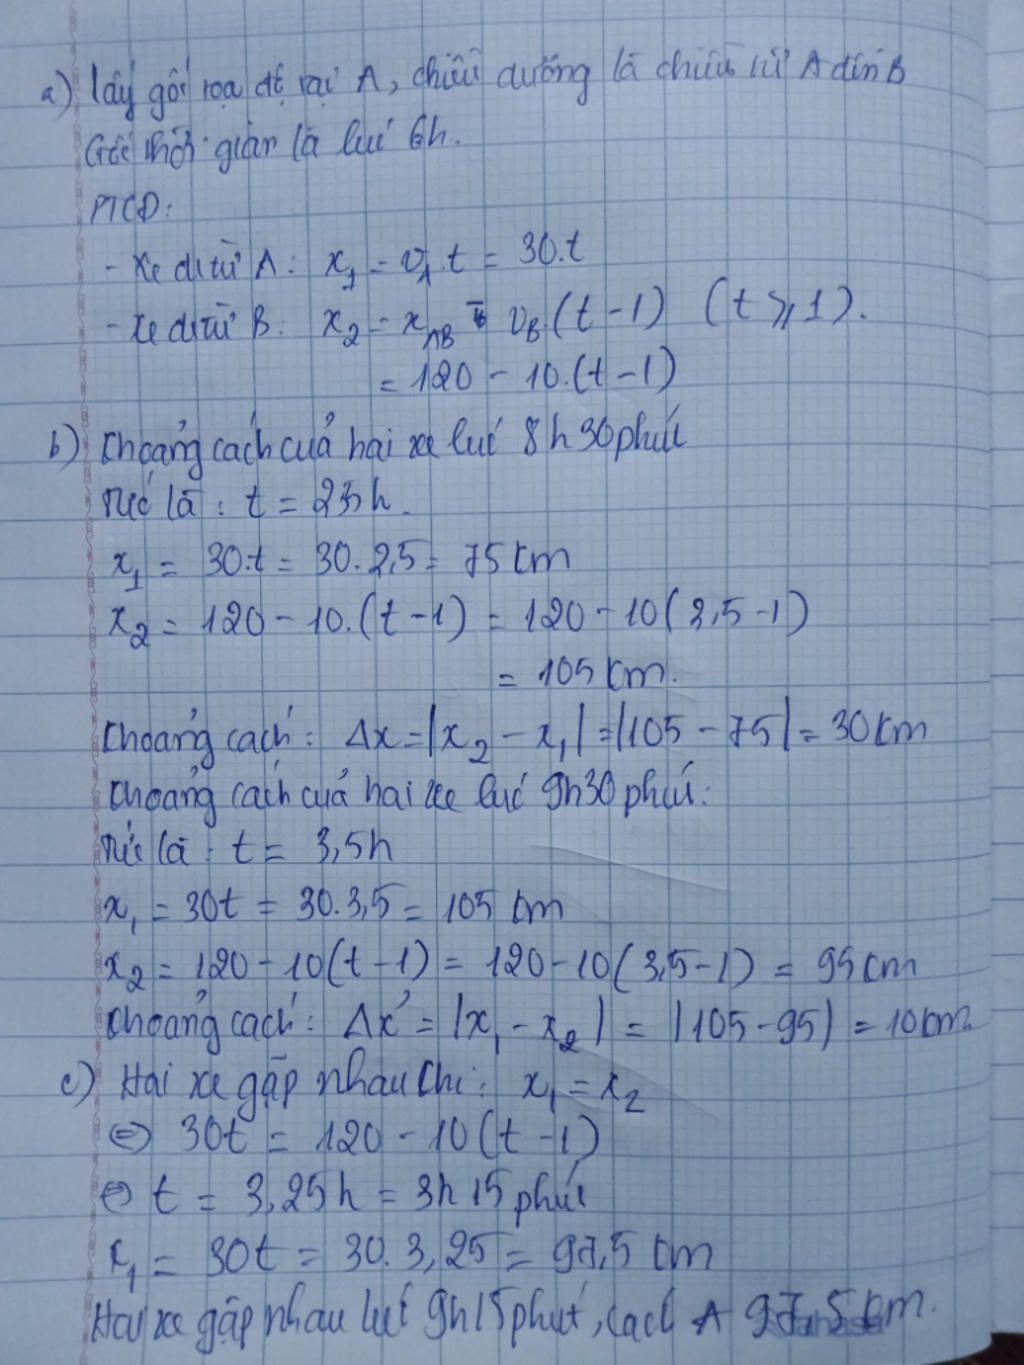 a) Lấy gốc toạ độ tại A, chiều dương là chiều từ A đến B
Gốc thời gian là lúc 6h.
PTCĐ:
- Xe đi từ A: x₁ = v_A t = 30.t
- Xe đi từ B: x₂ = x_AB - v_B (t-1) (t ⩾ 1).
= 120 - 10.(t-1)
b) Khoảng cách của hai xe lúc 8h30phút
Tức là: t = 2,5h.
x₁ = 30.t = 30.2,5 = 75 km
x₂ = 120 - 10.(t-1) = 120 - 10(2,5-1)
= 105 km.
Khoảng cách: Δx = |x₂ - x₁| = |105 - 75| = 30 km
Khoảng cách của hai xe lúc 9h30phút:
Tức là: t = 3,5h
x₁ = 30t = 30.3,5 = 105 km
x₂ = 120 - 10(t-1) = 120 - 10(3,5-1) = 95 km
Khoảng cách: Δx' = |x₁ - x₂| = |105 - 95| = 10 km
c) Hai xe gặp nhau khi: x₁ = x₂
⇔ 30t = 120 - 10(t-1)
⇔ t = 3,25h = 3h 15 phút
x₁ = 30t = 30.3,25 = 97,5 km
Hai xe gặp nhau lúc 9h15phút, cách A 97,5 km.